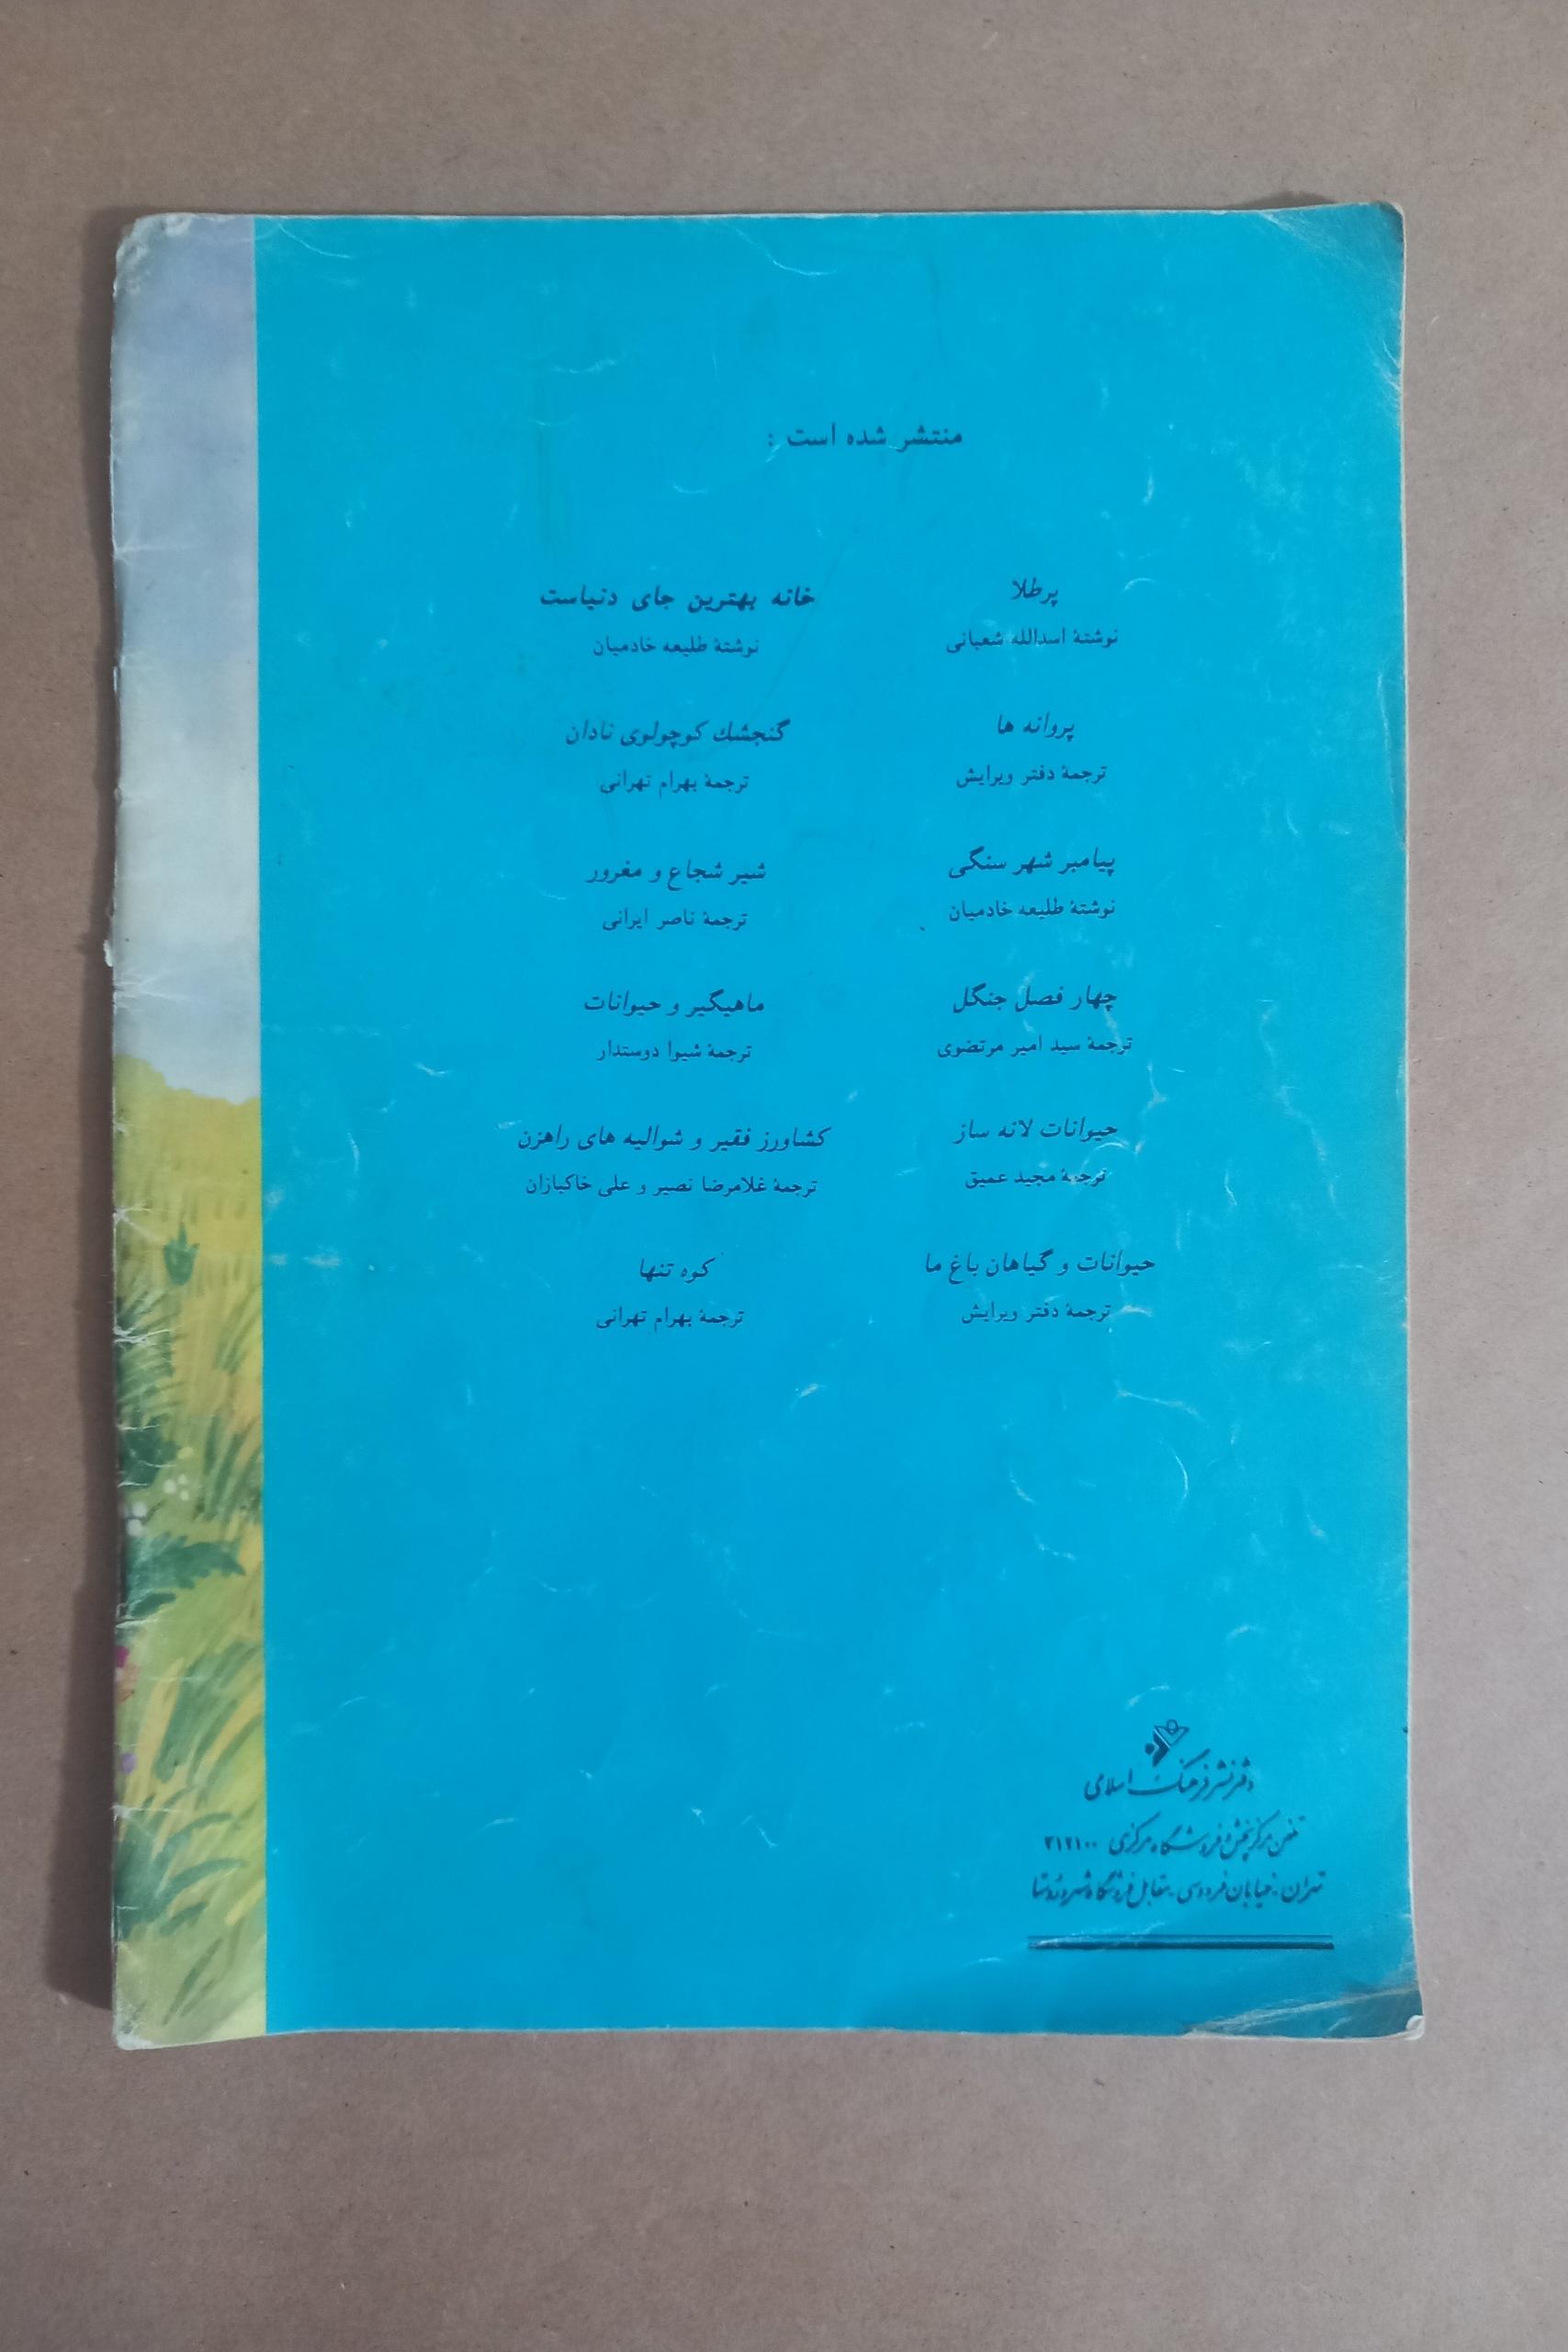 منتشر شده است :
پرطلا
نوشتهٔ اسدالله شعبانی
پروانه ها
ترجمهٔ دفتر ویرایش
پیامبر شهر سنگی
نوشتهٔ طلیعه خادمیان
چهار فصل جنگل
ترجمهٔ سید امیر مرتضوی
حیوانات لانه ساز
ترجمهٔ مجید عمیق
حیوانات و گیاهان باغ ما
ترجمهٔ دفتر ویرایش
خانه بهترین جای دنیاست
نوشتهٔ طلیعه خادمیان
گنجشك کوچولوی نادان
ترجمهٔ بهرام تهرانی
شیر شجاع و مغرور
ترجمهٔ ناصر ایرانی
ماهیگیر و حیوانات
ترجمهٔ شیوا دوستدار
کشاورز فقیر و شوالیه های راهزن
ترجمهٔ غلامرضا نصیر و علی خاکبازان
کوه تنها
ترجمهٔ بهرام تهرانی
دفتر نشر فرهنگ اسلامی
تلفن مرکز پخش و فروشگاه مرکزی ۳۱۲۱۰۰
تهران ـ خیابان فردوسی ـ مقابل فروشگاه شهر و روستا